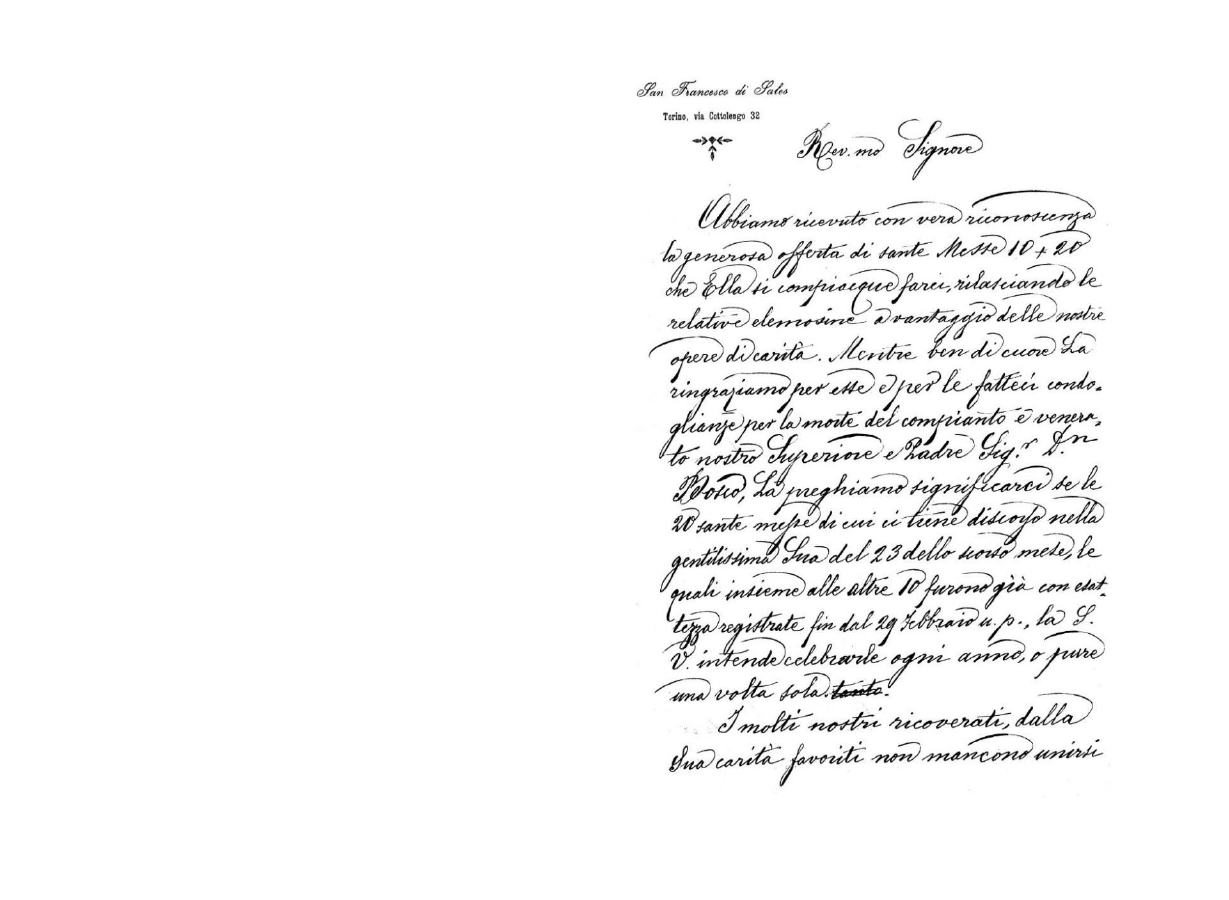 San Francesco di Sales
Torino, via Cottolengo 32
Rev.mo Signore
Abbiamo ricevuto con vera riconoscenza
la generosa offerta di sante Messe 10 + 20
che Ella si compiacque farci, rilasciando le
relative elemosine a vantaggio delle nostre
opere di carità. Mentre ben di cuore La
ringraziamo per esse e per le fatteci condo-
glianze per la morte del compianto e venera-
to nostro Superiore e Padre Sig.r D.n
Bosco, La preghiamo significarci se le
20 sante messe di cui ci tiene discorso nella
gentilissima Sua del 23 dello scorso mese, le
quali insieme alle altre 10 furono già con esat-
tezza registrate fin dal 29 Febbraio u. p., la S.
V. intende celebrarle ogni anno, o pure
una volta sola tanto.
I molti nostri ricoverati, dalla
Sua carità favoriti non mancono unirsi